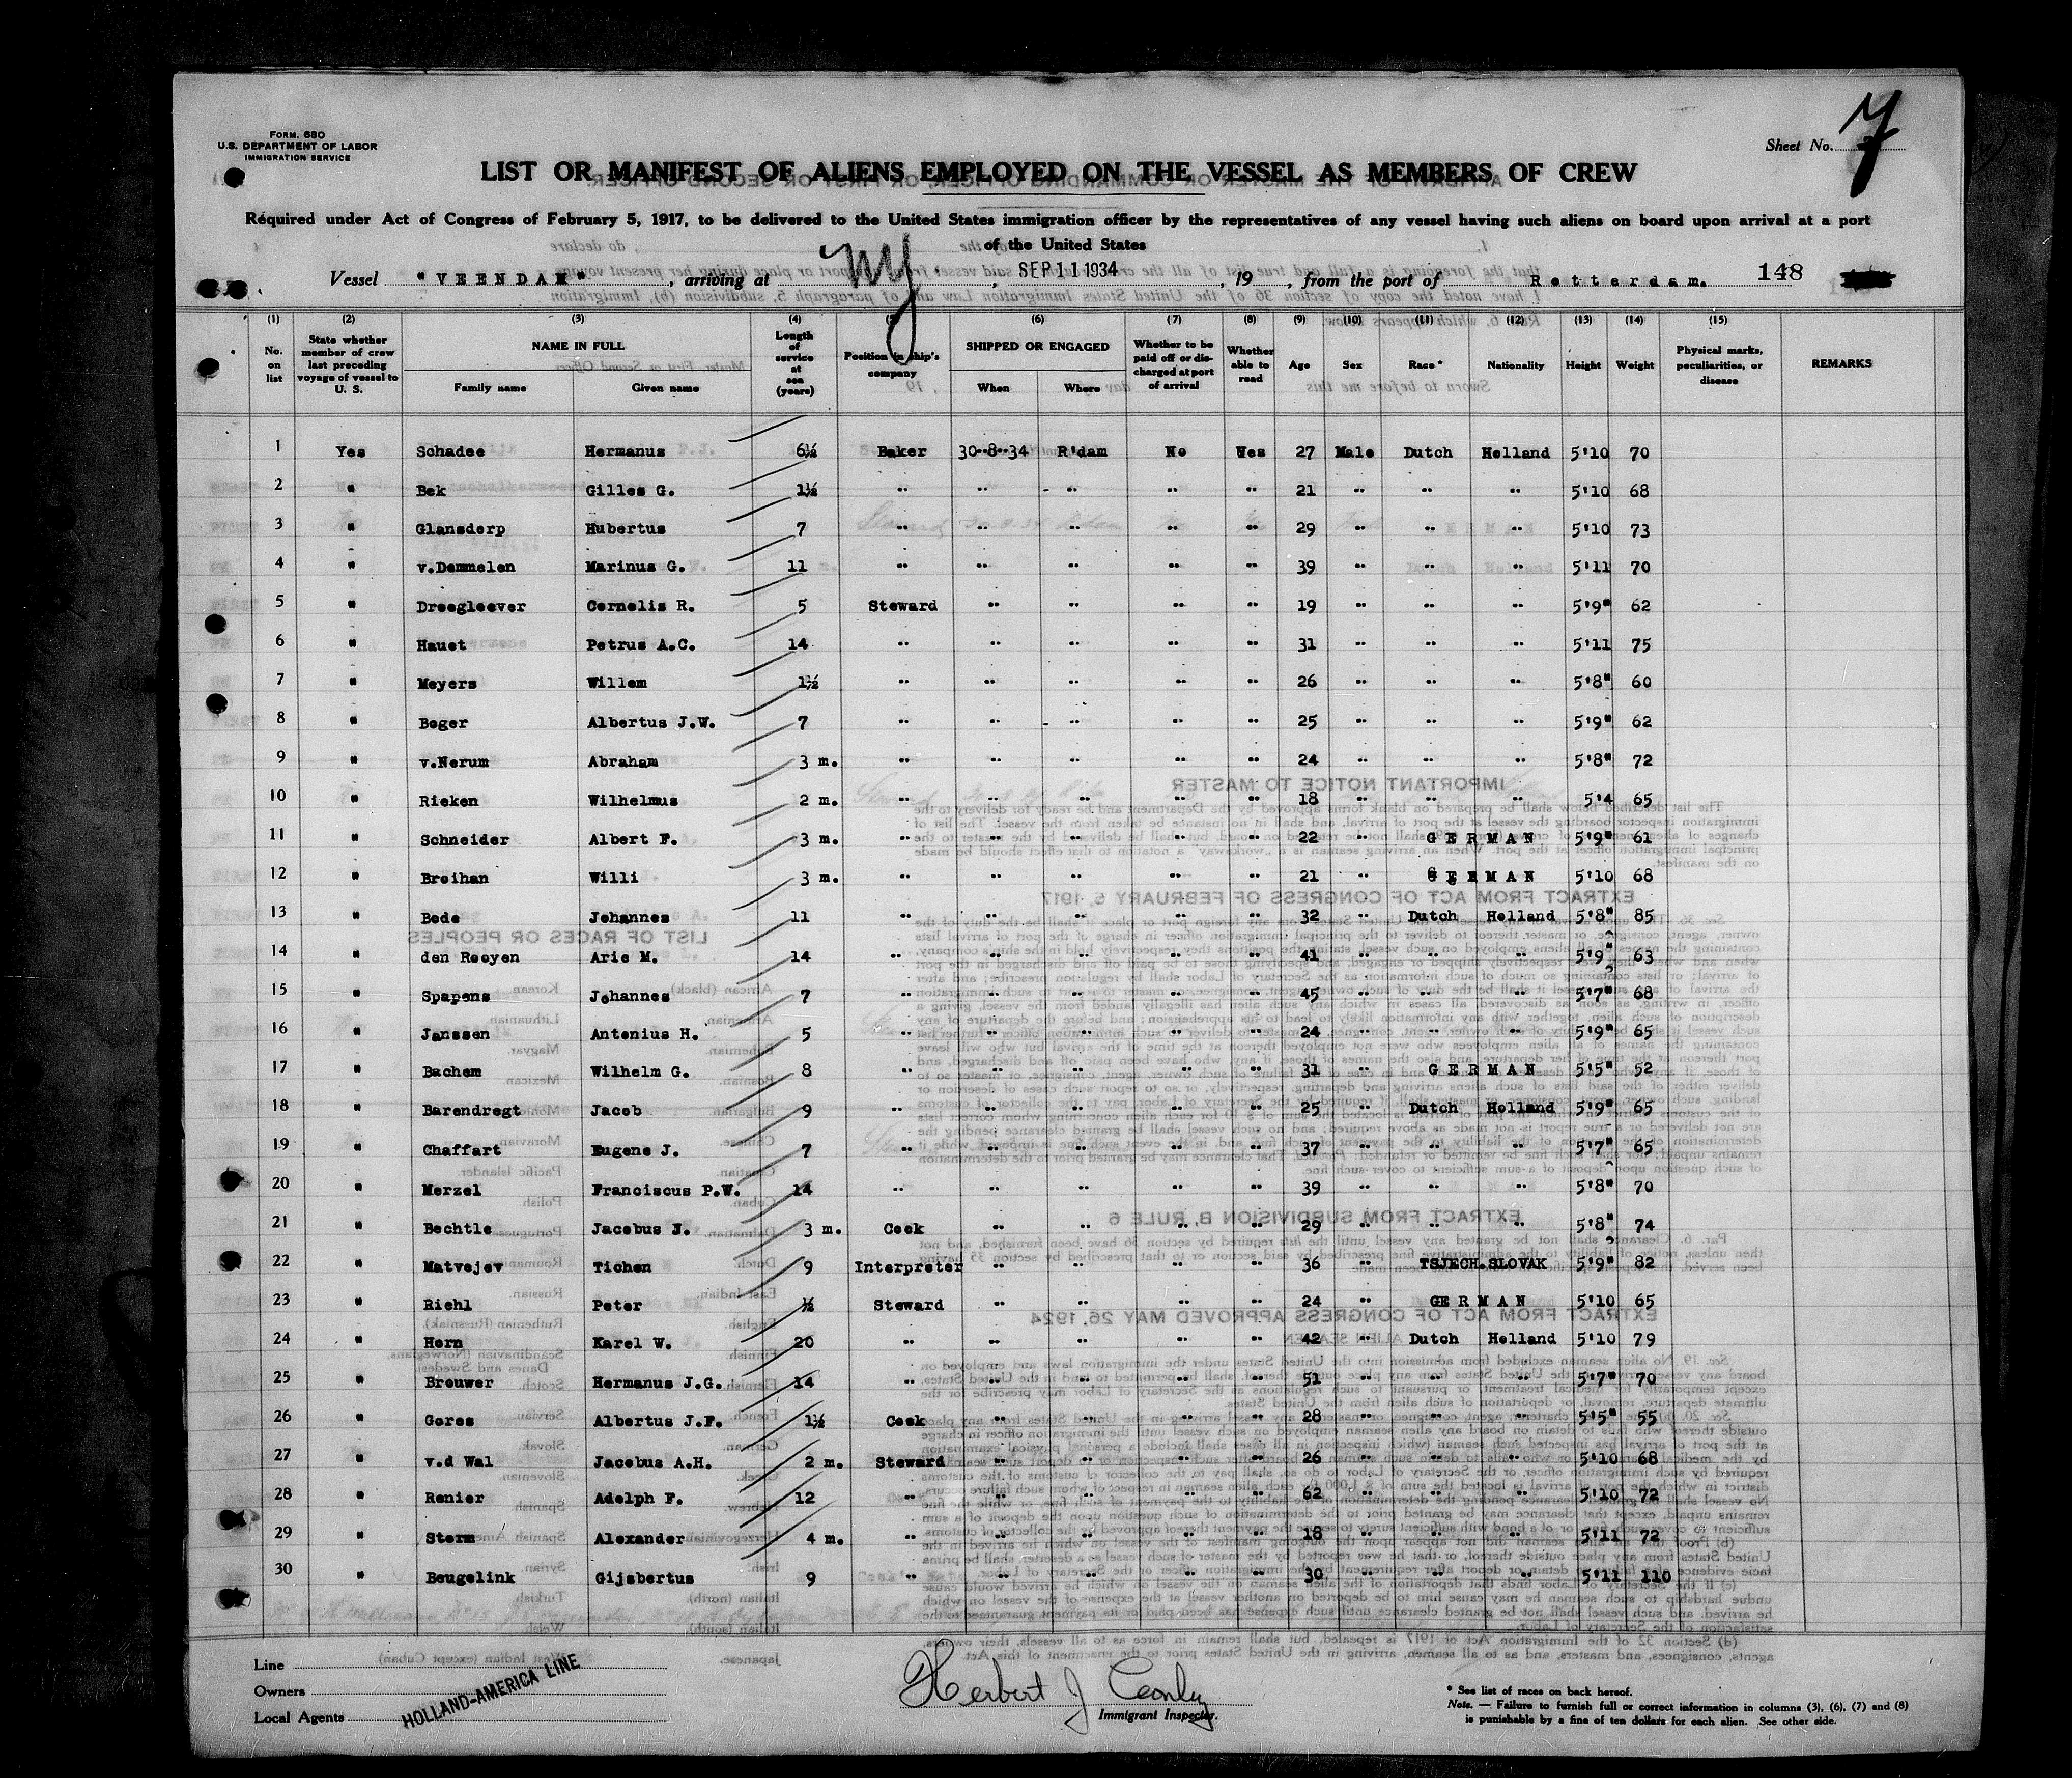 FORM. 680
U.S. DEPARTMENT OF LABOR
IMMIGRATION SERVICE
Sheet No. 7
LIST OR MANIFEST OF ALIENS EMPLOYED ON THE VESSEL AS MEMBERS OF CREW
Required under Act of Congress of February 5, 1917, to be delivered to the United States immigration officer by the representatives of any vessel having such aliens on board upon arrival at a port
of the United States
Vessel "VEENDAM", arriving at NY, SEP 11 1934, 19, from the port of Rotterdam. 148
(1) (2) (3) (4) (5) (6) (7) (8) (9) (10) (11) (12) (13) (14) (15)
No. on list State whether member of crew last preceding voyage of vessel to U. S. NAME IN FULL Family name Given name Length of service at sea (years) Position in ship's company SHIPPED OR ENGAGED When Where Whether to be paid off or discharged at port of arrival Whether able to read Age Sex Race* Nationality Height Weight Physical marks, peculiarities, or disease REMARKS
1 Yes Schadee Hermanus 6½ Baker 30-8-34 R'dam No Yes 27 Male Dutch Holland 5'10 70
2 " Bek Gilles G. 1½ " " " " " 21 " " " 5'10 68
3 " Glansdorp Hubertus 7 " " " " " 29 " " " 5'10 73
4 " v.Dommelen Marinus G. 11 " " " " " 39 " " " 5'11 70
5 " Droogleever Cornelis R. 5 Steward " " " " 19 " " " 5'9" 62
6 " Hauet Petrus A.C. 14 " " " " " 31 " " " 5'11 75
7 " Meyers Willem 1½ " " " " " 26 " " " 5'8" 60
8 " Boger Albertus J.W. 7 " " " " " 25 " " " 5'9" 62
9 " v.Nerum Abraham 3 m. " " " " " 24 " " " 5'8" 72
10 " Rieken Wilhelmus 2 m. " " " " " 18 " " " 5'4 65
11 " Schneider Albert F. 3 m. " " " " " 22 " GERMAN 5'9" 61
12 " Breihan Willi 3 m. " " " " " 21 " GERMAN 5'10 68
13 " Bode Johannes 11 " " " " " 32 " Dutch Holland 5'8" 85
14 " den Rooyen Arie M. 14 " " " " " 41 " " " 5'9" 63
15 " Spapens Johannes 7 " " " " " 45 " " " 5'7" 68
16 " Janssen Antonius H. 5 " " " " " 24 " " " 5'9" 65
17 " Bachem Wilhelm G. 8 " " " " " 31 " GERMAN 5'5" 52
18 " Barendregt Jacob 9 " " " " " 25 " Dutch Holland 5'9" 65
19 " Chaffart Eugene J. 7 " " " " " 37 " " " 5'7" 65
20 " Merzel Franciscus P.W. 14 " " " " " 39 " " " 5'8" 70
21 " Bechtle Jacobus J. 3 m. Cook " " " " 29 " " " 5'8" 74
22 " Matvejev Tichon 9 Interpreter " " " " 36 " TSJECH.SLOVAK 5'9" 82
23 " Riehl Peter ½ Steward " " " " 24 " GERMAN 5'10 65
24 " Horn Karel W. 20 " " " " " 42 " Dutch Holland 5'10 79
25 " Brouwer Hermanus J.G. 14 " " " " " 51 " " " 5'7" 70
26 " Gores Albertus J.F. 1½ Cook " " " " 28 " " " 5'5" 55
27 " v.d Wal Jacobus A.H. 2 m. Steward " " " " 26 " " " 5'10 68
28 " Renier Adolph F. 12 " " " " " 62 " " " 5'10 72
29 " Storm Alexander 4 m. " " " " " 18 " " " 5'11 72
30 " Beugelink Gijsbertus 9 " " " " " 30 " " " 5'11 110
Line
Owners HOLLAND-AMERICA LINE
Local Agents
Herbert J Conly
Immigrant Inspector.
* See list of races on back hereof.
Note. — Failure to furnish full or correct information in columns (3), (6), (7) and (8)
is punishable by a fine of ten dollars for each alien. See other side.